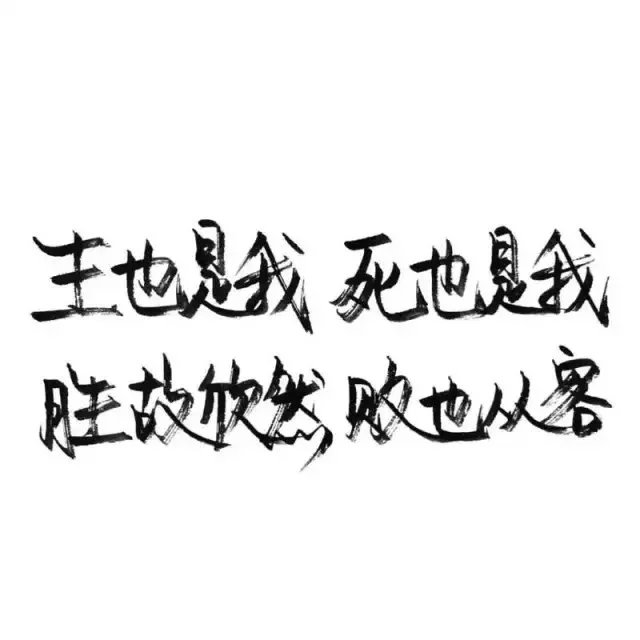 生也是我 死也是我
胜故欣然 败也从容